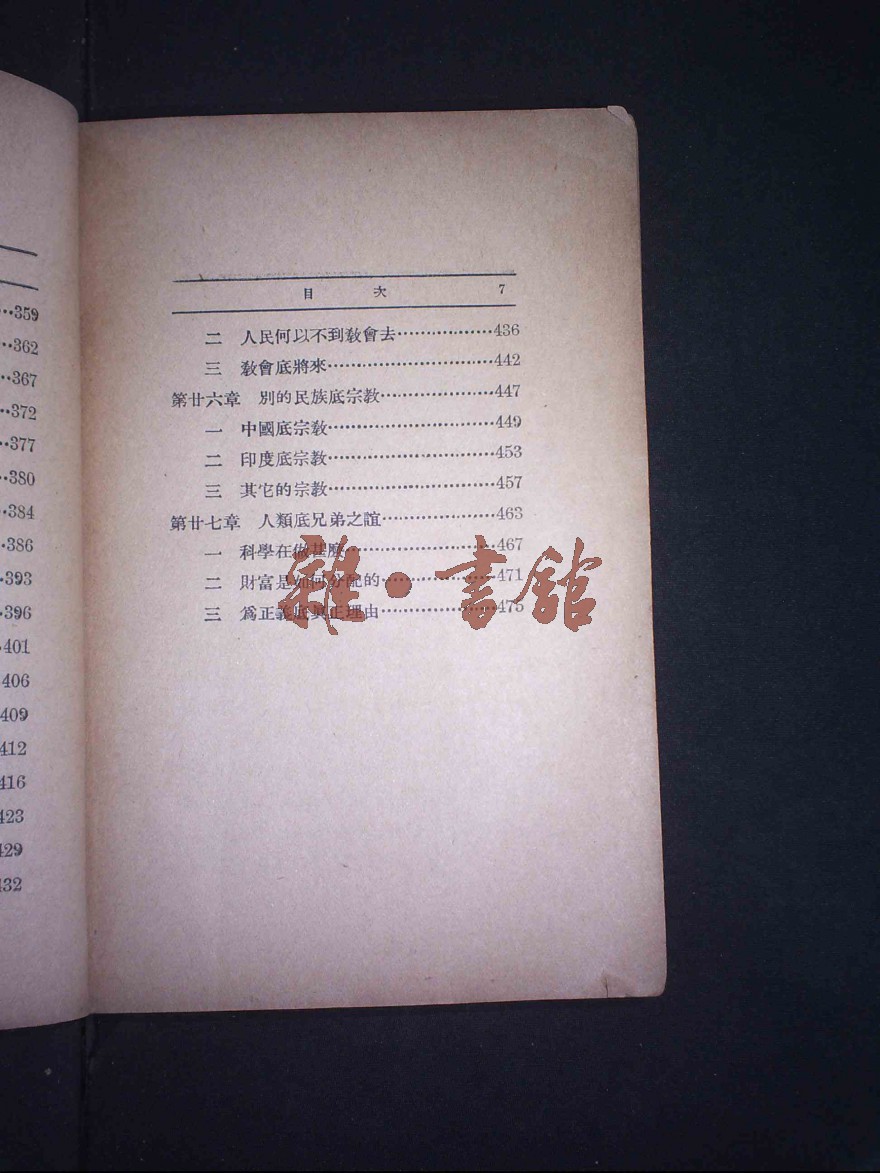 …359
…362
…367
…372
…377
…380
…384
…386
…393
…396
401
406
409
412
416
423
429
432
目 次 7
二 人民何以不到教會去………………436
三 教會底將來………………442
第廿六章 別的民族底宗教………………447
一 中國底宗教………………449
二 印度底宗教………………453
三 其它的宗教………………457
第廿七章 人類底兄弟之誼………………463
一 科學在做甚麼………………467
二 財富是如何分配的………………471
三 爲正義底眞正理由………………475
雜·書館